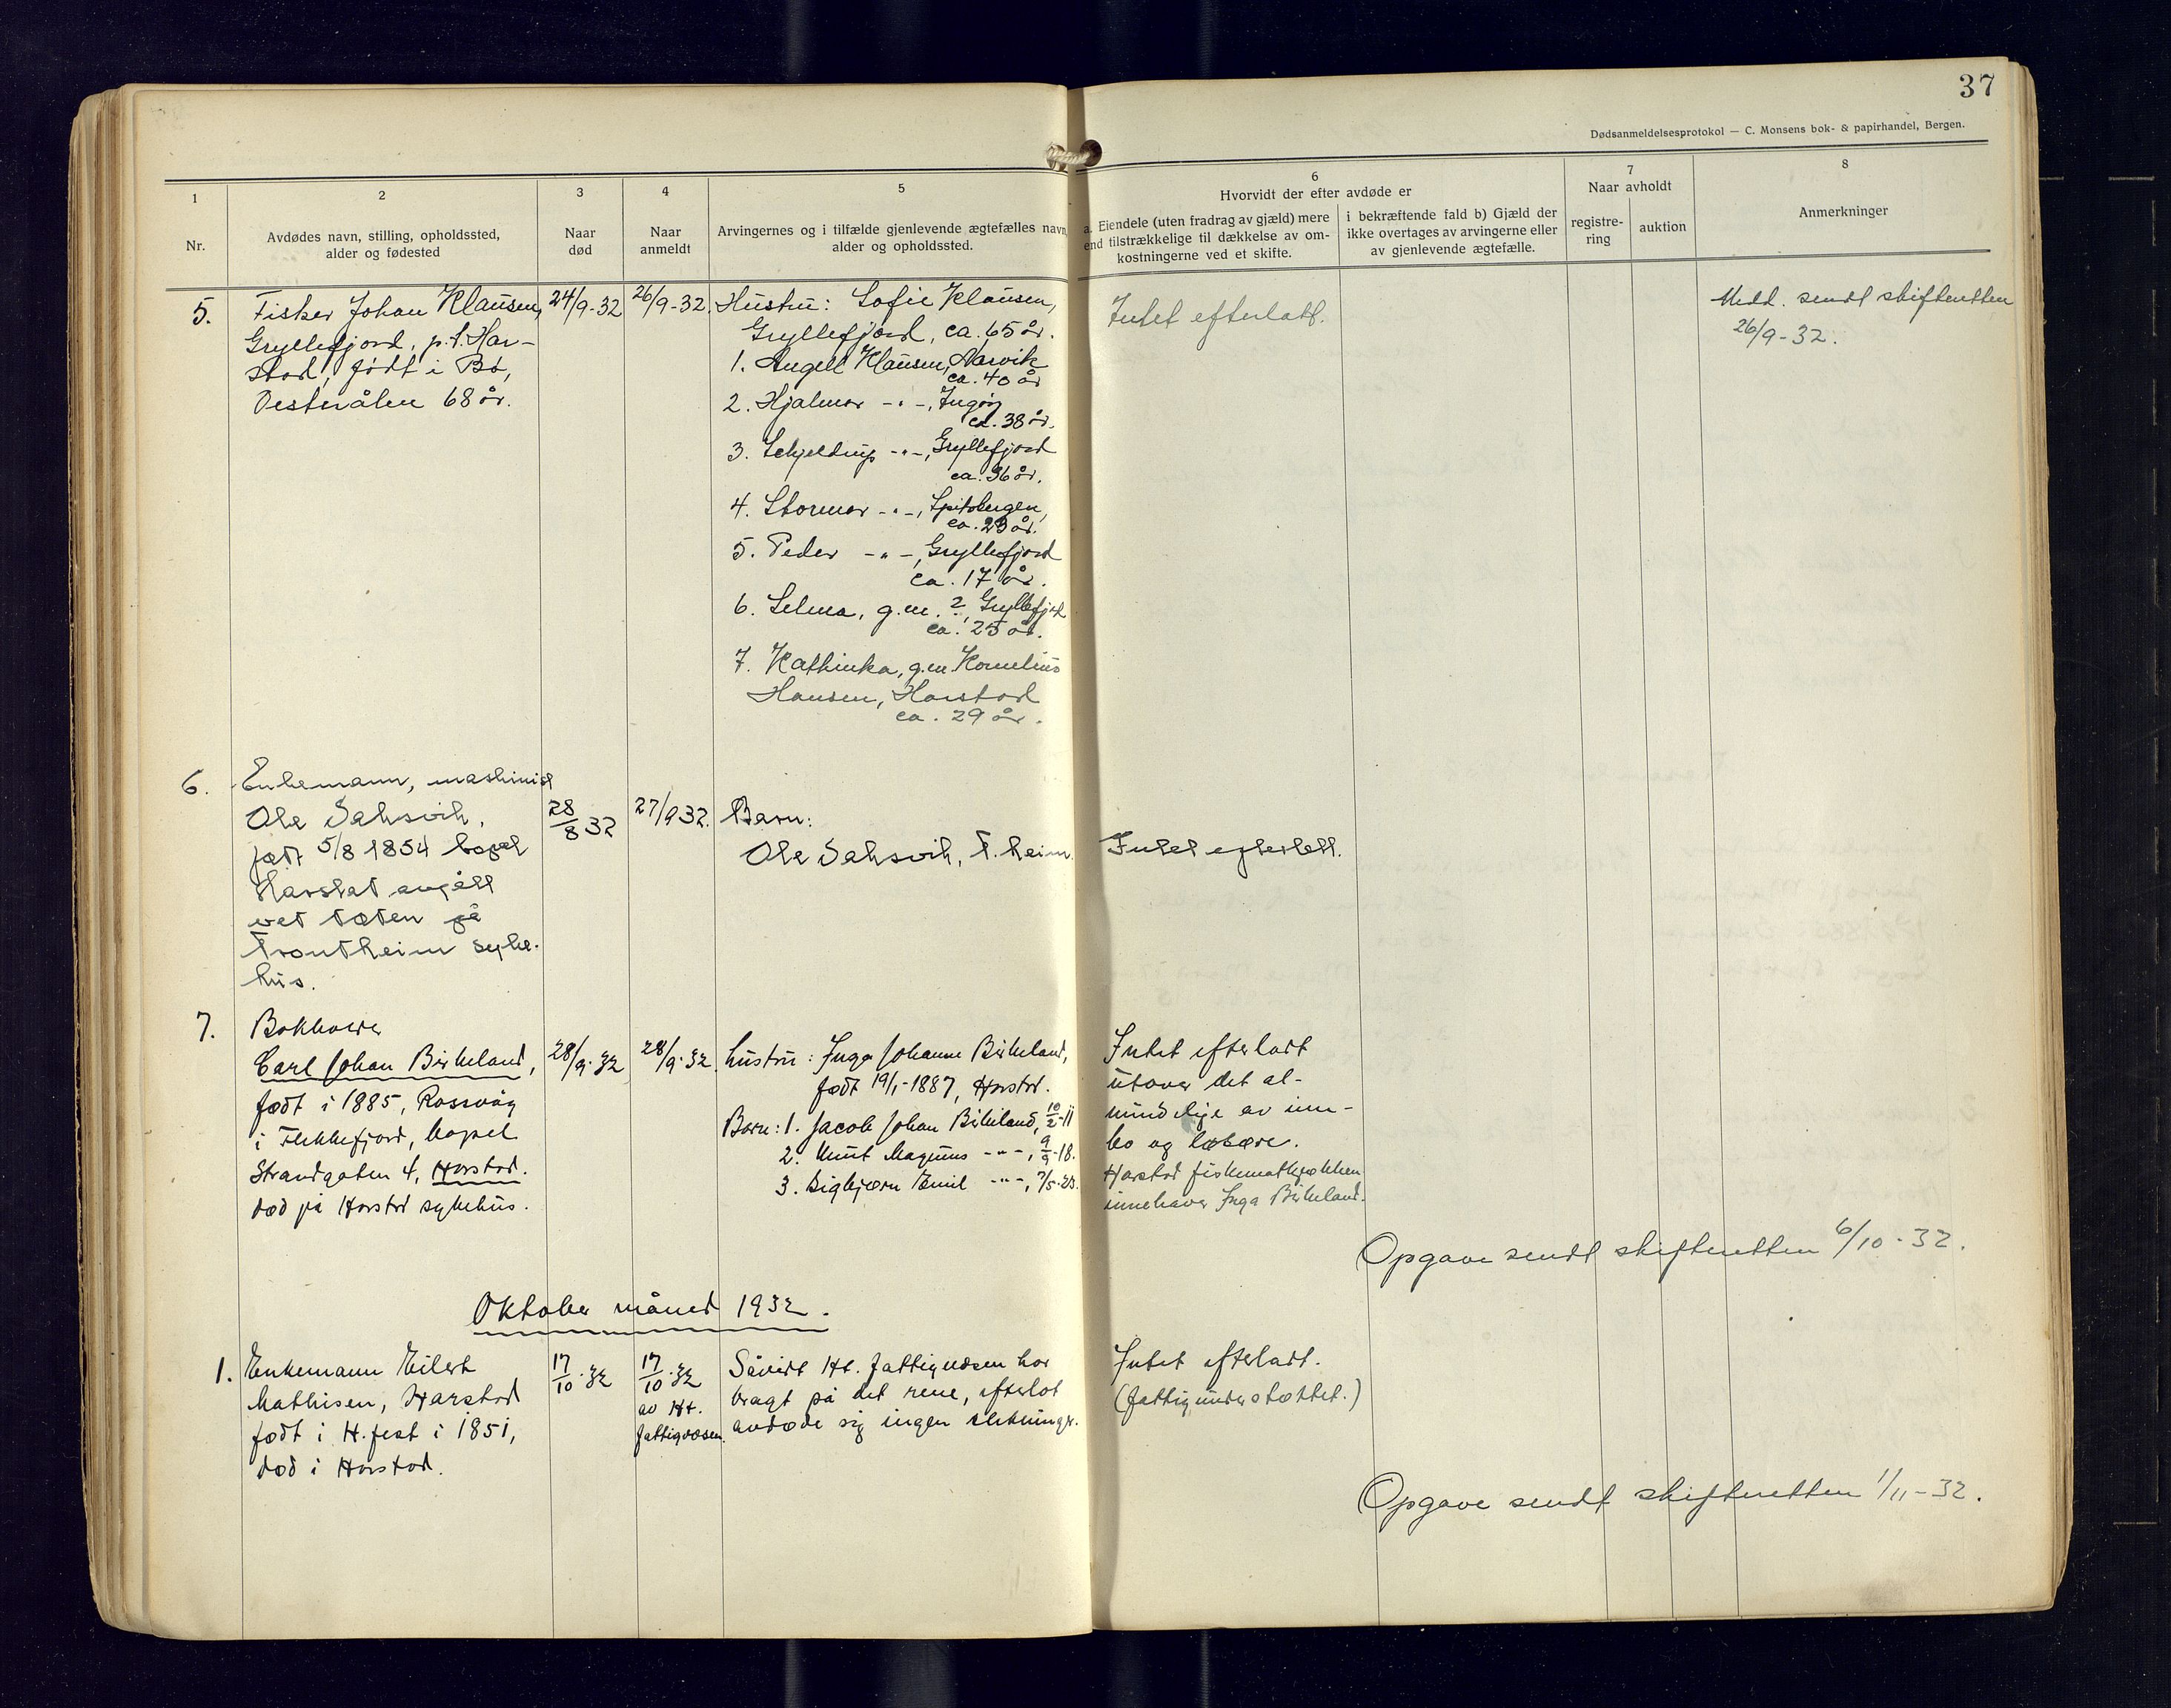 37
Dødsanmeldelsesprotokol — C. Monsens bok- & papirhandel, Bergen.
1
Nr.
2
Avdødes navn, stilling, opholdssted,
alder og fødested
3
Naar
død
4
Naar
anmeldt
5
Arvingernes og i tilfælde gjenlevende ægtefælles navn,
alder og opholdssted.
6
Hvorvidt der efter avdøde er
a. Eiendele (uten fradrag av gjæld) mere
end tilstrækkelige til dækkelse av om-
kostningerne ved et skifte.
i bekræftende fald b) Gjæld der
ikke overtages av arvingerne eller
av gjenlevende ægtefælle.
7
Naar avholdt
registre-
ring
auktion
8
Anmerkninger
5.
Fisker Johan Klausen,
Gryllefjord, p.t. Har-
stad, født i Bø,
Vesterålen 68 år.
24/9-32
26/9-32.
Hustru: Sofie Klausen,
Gryllefjord, ca. 65 år.
1. Angell Klausen, Narvik
ca. 40 år
2. Hjalmar -"-, Ingøy
ca. 38 år.
3. Schjeldrup -"-, Gryllefjord
ca. 36 år.
4. Stormer -"-, Spitsbergen,
ca. 23 år.
5. Peder -"-, Gryllefjord
ca. 17 år.
6. Selma, g.m. ?, Gryllefjord
ca. 25 år.
7. Kathinka, g.m Kornelius
Hansen, Harstad
ca. 29 år.
Intet efterlatt.
Medd. sendt skifteretten
26/9-32.
6.
Enkemann, maskinist
Ole
født 5/8 1854 bopel
Harstat
vet
Trontheim syke-
hus.
28/8 32
27/9 32.
Barn:
Ole T.heim.
Intet efterlatt.
7.
Bokholder
Carl Johan Birkeland,
født i 1885, Rossvåg
i Flekkefjord, bopel
Strandgaten 4, Harstad.
død på Harstad sykehus.
28/9-32
28/9-32.
hustru: Inga Johanne Birkeland,
født 19/1-1887, Harstad.
Barn: 1. Jacob Johan Birkeland, 10/2-11
2. Knut Magnus -"-, 9/9-18.
3. Sigbjørn Emil -"-, 7/5-23.
Intet efterlatt
utover det al-
mindelige av inn-
bo og løsøre.
Harstad fiskematkjøkken
innehaver Inga Birkeland.
Opgave sendt skifteretten 6/10-32.
Oktober måned 1932.
1.
Enkemann Eilert
Mathisen, Harstad
født i H.fest i 1851,
død i Harstad.
17/10-32
17/10-32
av Ht.
fattigvæsen.
Såvidt Ht. fattigvæsen har
bragt på det rene, efterlot
avdøde sig ingen slektninger.
Intet efterlatt.
(fattigunderstøttet.)
Opgave sendt skifteretten 1/11-32.